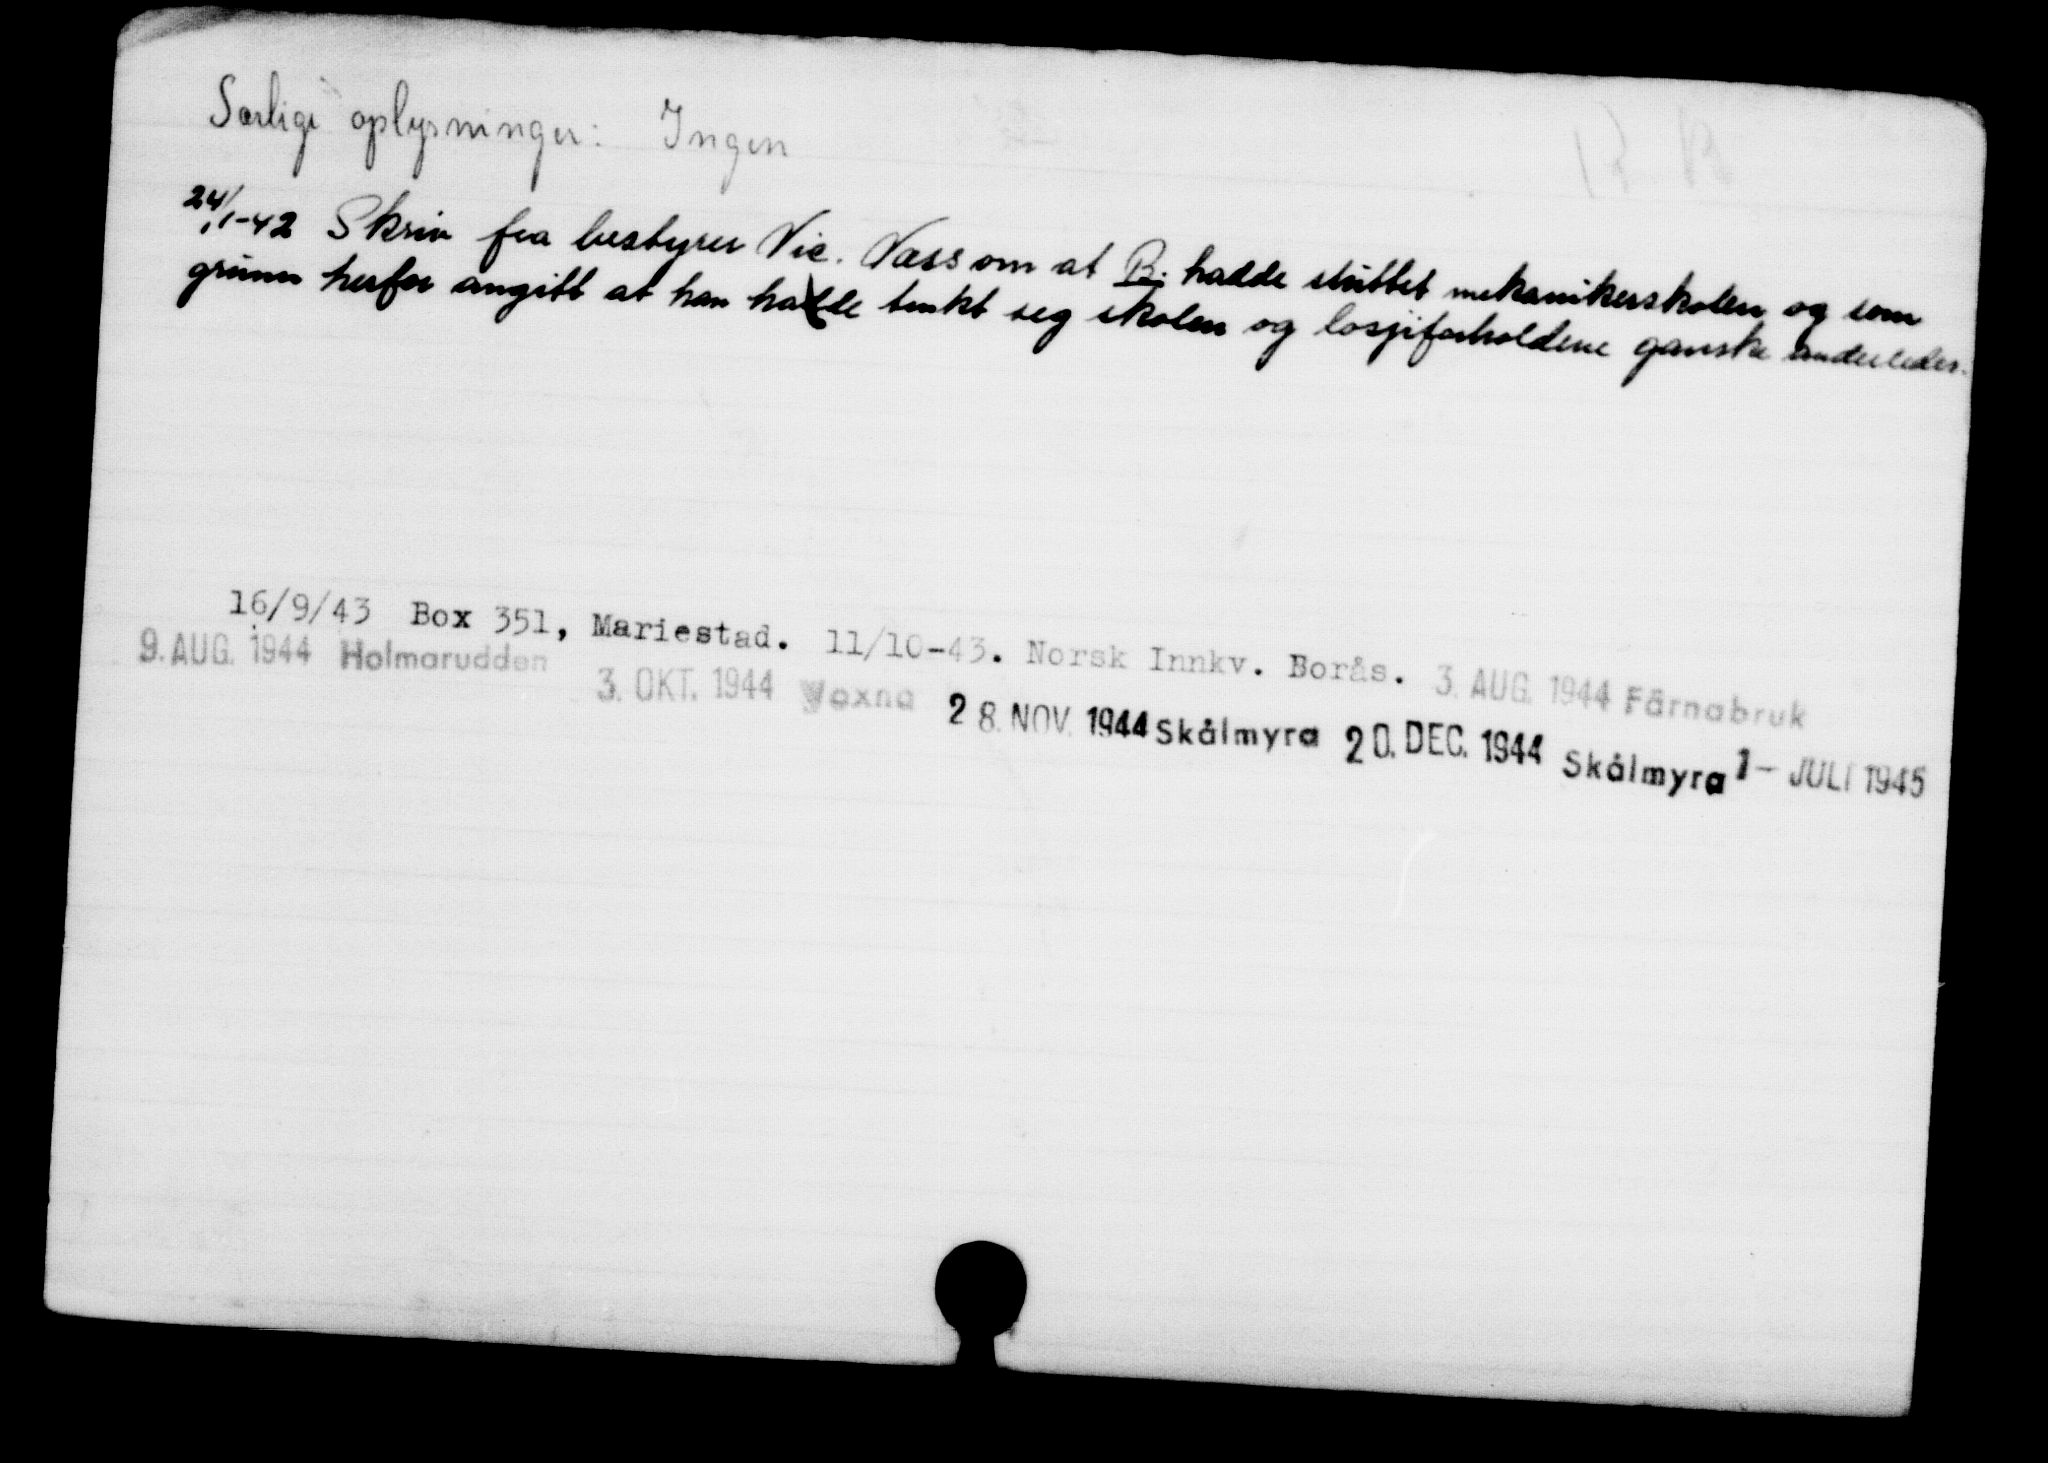 Særlige oplysninger: Ingen
24/1-42 Skriv fra bestyrer Vic. Næss om at B. hadde sluttet mekanikerskolen og som
grunn herfor angitt at han hadde tenkt seg skolen og losjiforholdene ganske anderledes.
16/9/43 Box 351, Mariestad. 11/10-43. Norsk Innkv. Borås. 3. AUG. 1944 Färnabruk
9. AUG. 1944 Holmarudden 3. OKT. 1944 Voxna 28. NOV. 1944 Skålmyra 20. DEC. 1944 Skålmyra 1 - JULI 1945